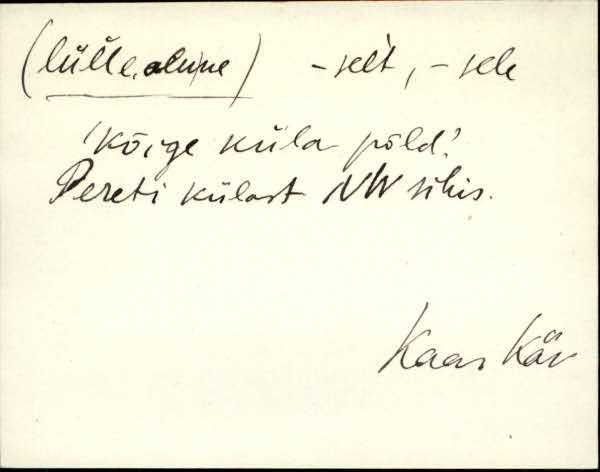 (lülle, alune) -selt, -sele
'kõige küla põld'.
Pereti külast NW sihis.
Kaar Kär